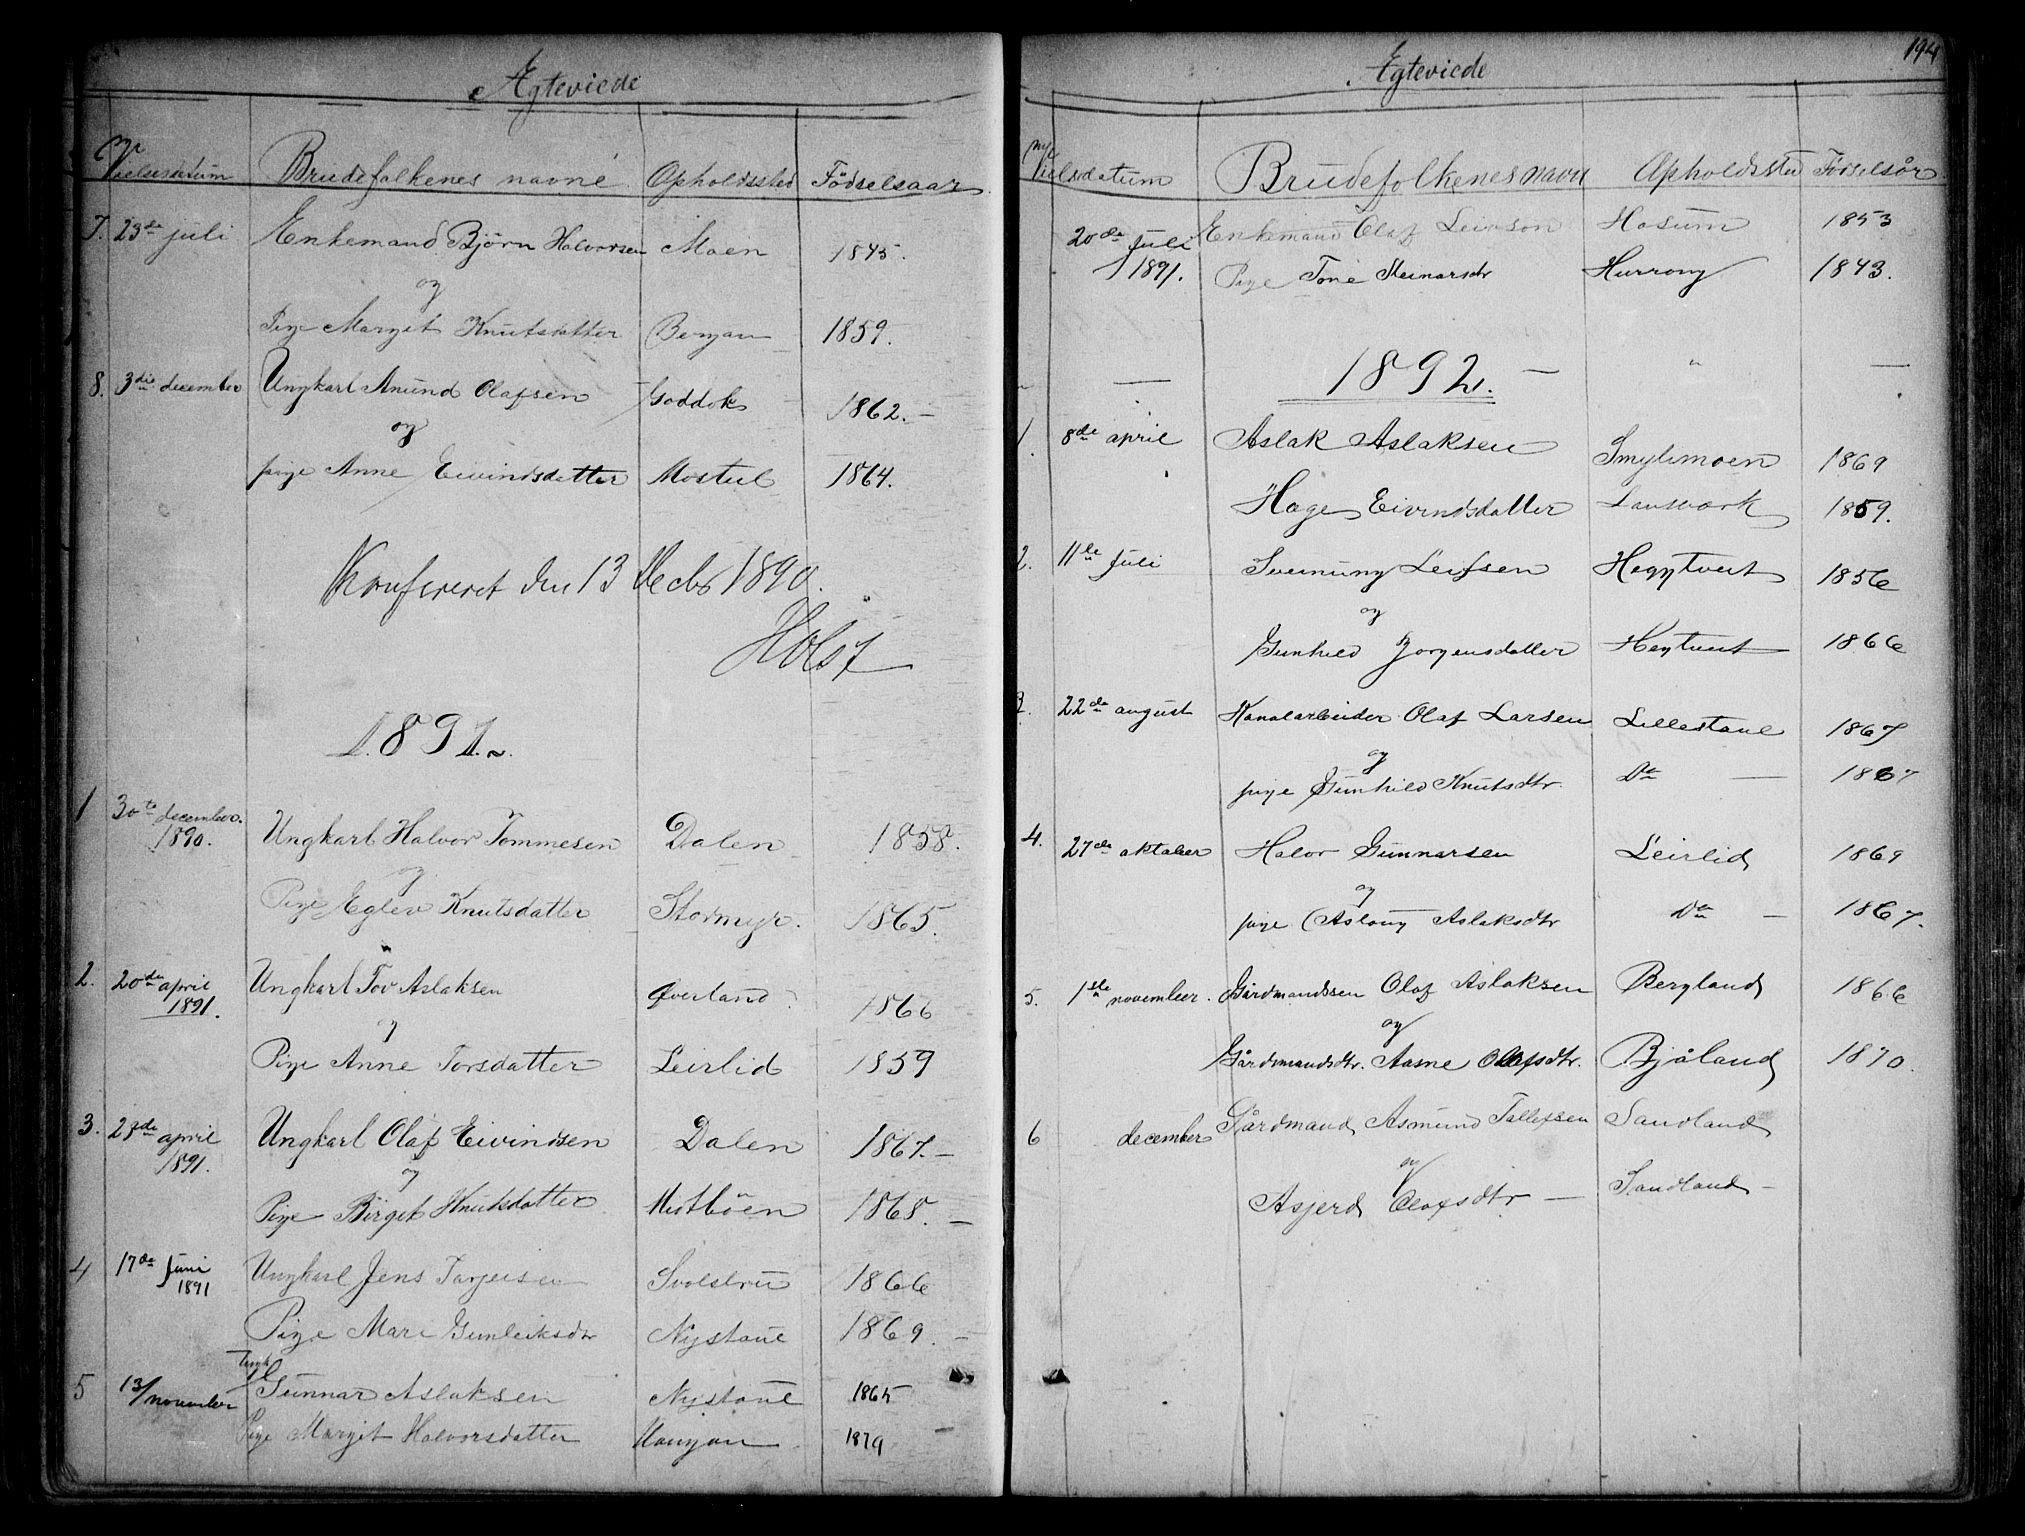 Ægteviede
Nr Vielsesdatum Brudefolkenes navne Opholdssted Födselsaar
7. 23de juli Enkemand Björn Halvorsen Moen 1845.
og
Pige Margit Knutsdatter Berjan 1859.
8. 3die december Ungkarl Anund Olafsen Goddok 1862.-
og
pige Anne Eivindsdatter Mostul 1864.
Konfereret den 13 Decbr 1890.
Holst
1891.
1 30te december 1890. Ungkarl Halvor Tommesen Dalen 1858.
og
Pige Eglev Knutsdatter Stormyr. 1865.
2. 20de april 1891. Ungkarl Tov Aslaksen Øverland 1866
og
Pige Anne Torsdatter Leirlid 1859
3. 23de april 1891. Ungkarl Olaf Eivindsen Dalen 1867.-
og
Pige Birgit Knutsdatter Midtböen 1868.-
4 17de Juni 1891 Ungkarl Jens Tarjeisen 1866
Pige Mari Gunleiksdtr Nystaul 1869.-
5 13/november Ungk Gunnar Aslaksen Nystaul 1865
Pige Margit Halvorsdatter 1879
194
Ægteviede
Nr Vielsdatum Brudefolkenes navn Opholdsted Födselsår
20de Juli 1891. Enkemand Olaf Leivson Hosum 1853
Pige Tone Steinarsdr 1843.
— 1892. — " —
1. 8de april Aslak Aslaksen Smylimoen 1869
Hæge Eivindsdatter Lausværk 1859.
2. 11te Juli Sveinung Leifsen Hegtveit 1856
og
Gunhild Jorgensdatter Hegtveit 1866
3. 22de august Kanalarbeider Olaf Larsen Lillestaul 1867
og
pige Gunhild Knutsdtr. Do — 1867
4. 27de oktober Halvor Gunnarsen Leirlid 1869
og
pige Aslaug Aslaksdtr Do — 1867.
5. 1ste november. Gårdmandssen Olaf Aslaksen Bergland 1866
og
Gårdmandsdtr. Aasne Olafsdtr. Bjåland 1870.
6 december Gårdmand Asmund Tallefsen Sandland
og
Asjerd Olafsdtr — Sandland —